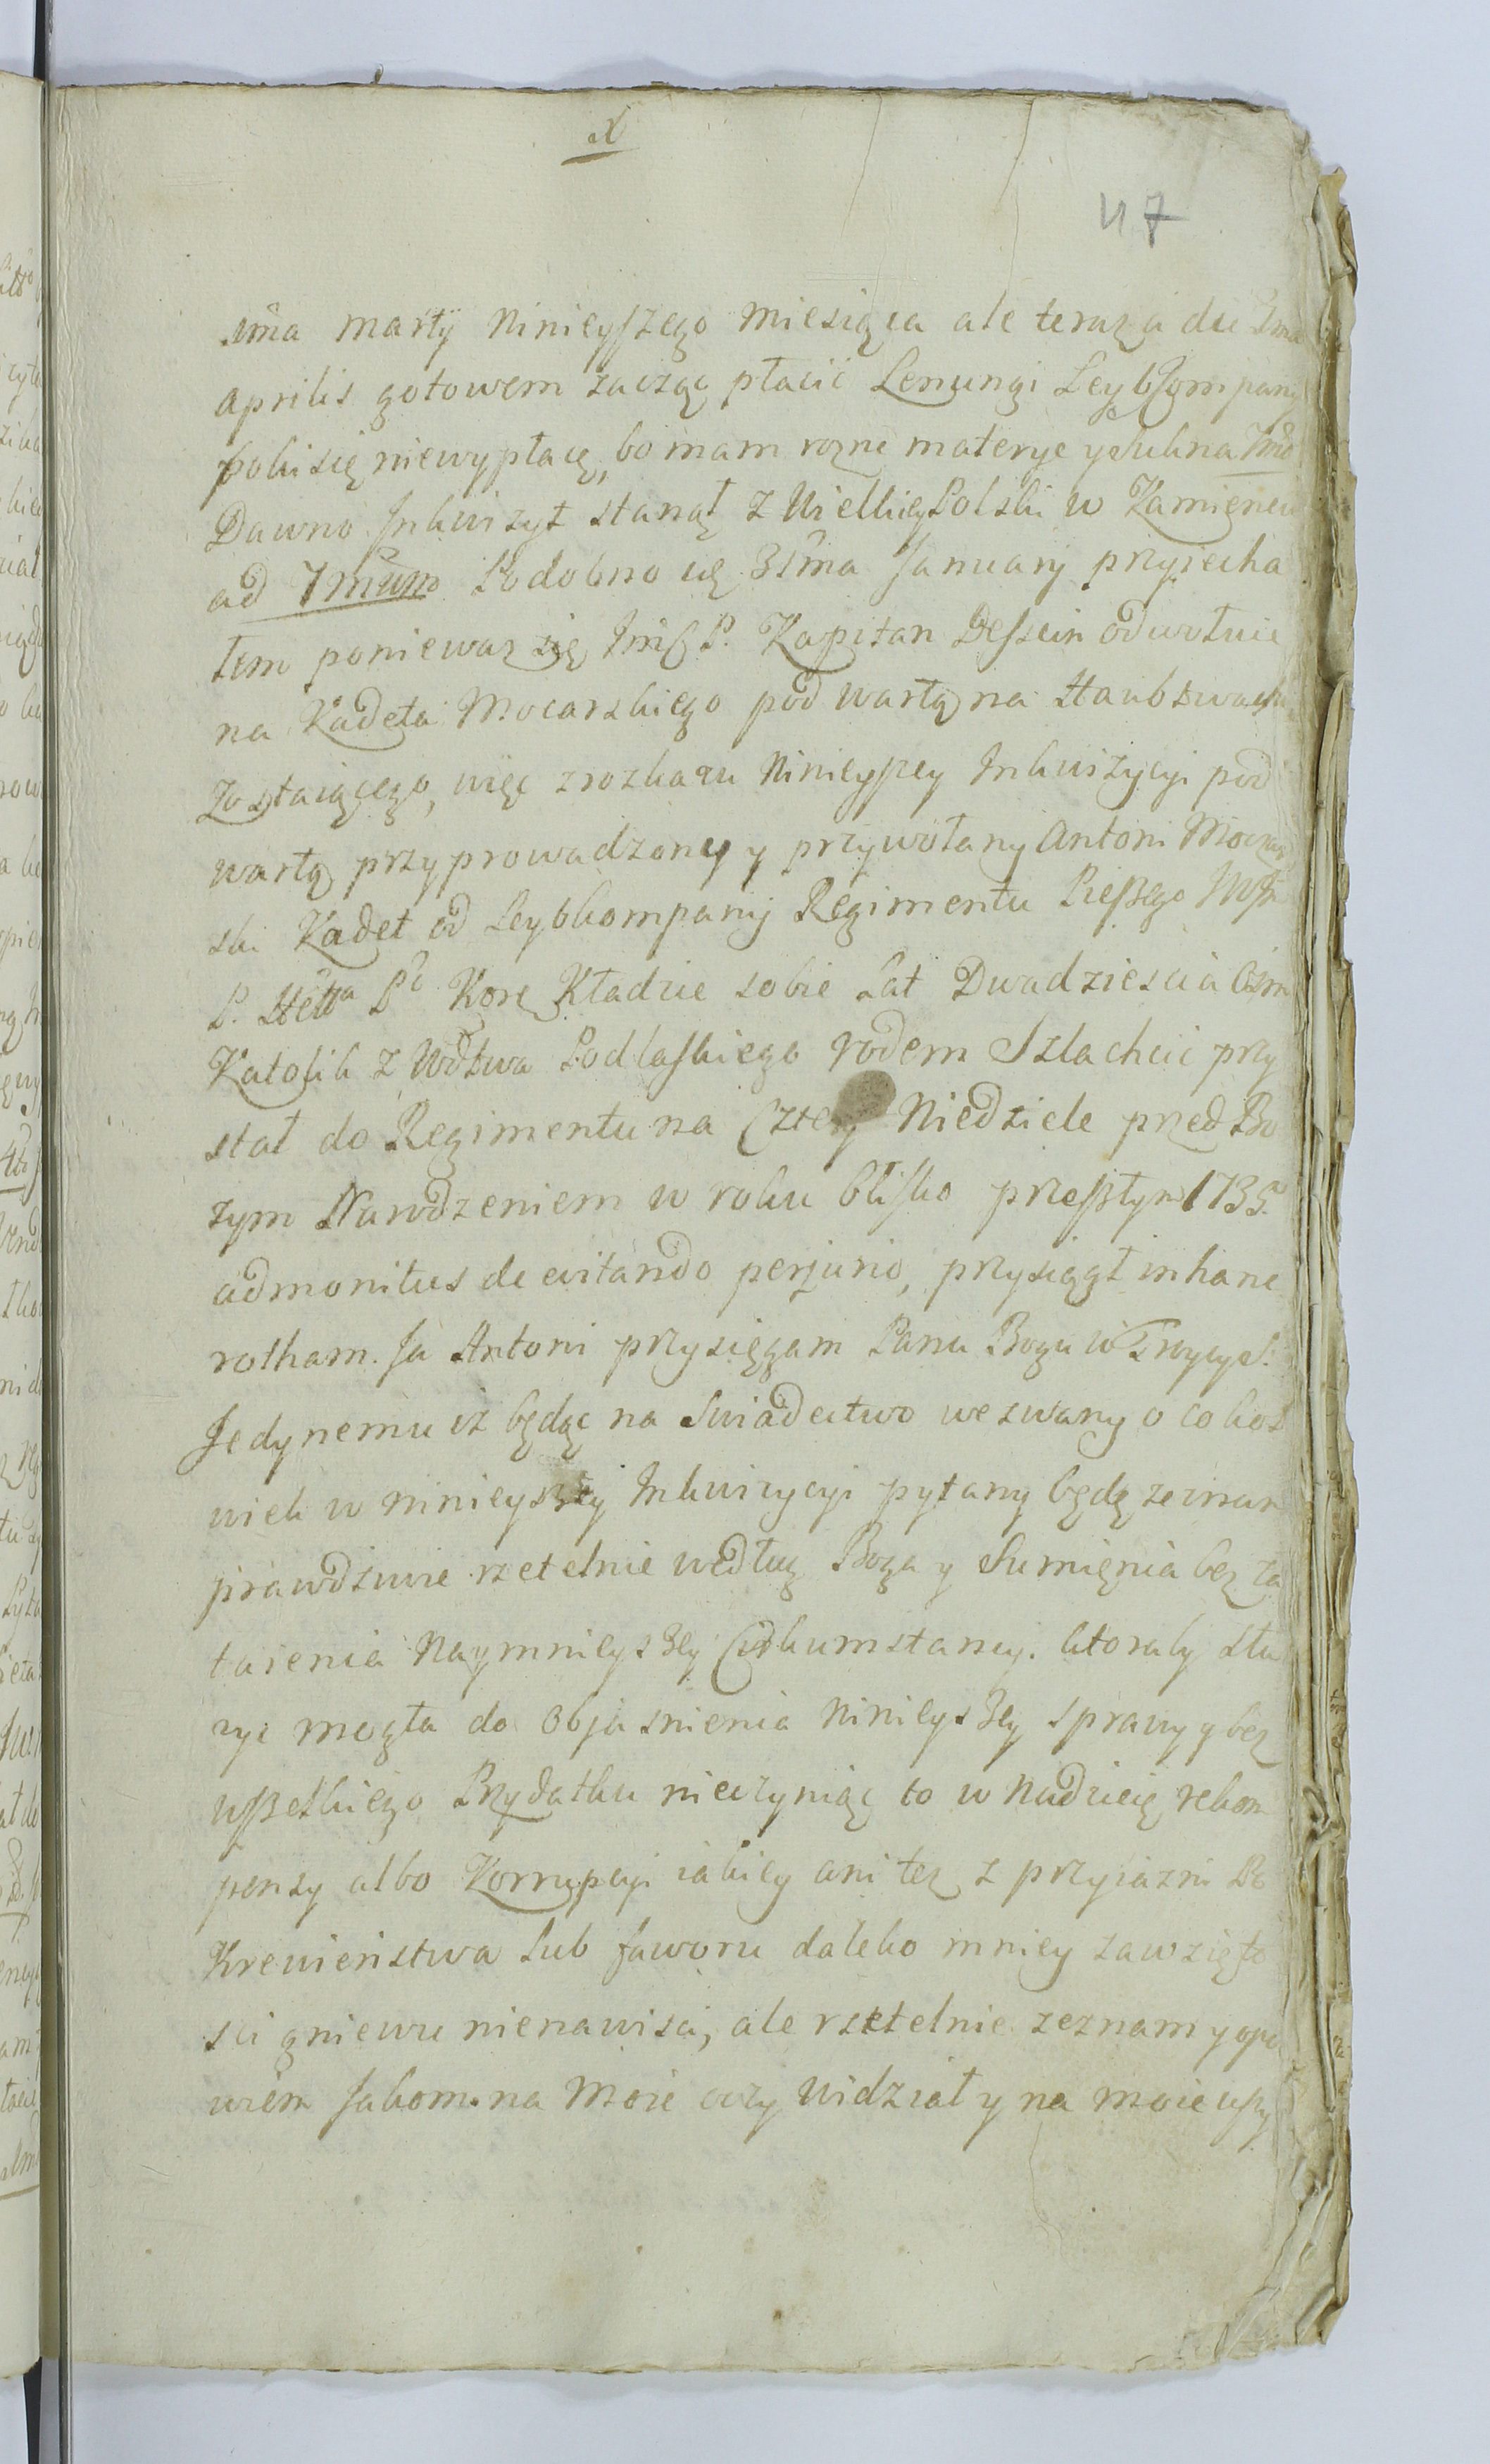 X
47
1ma marty ninieyszego miesiąca ale teraz a die 1ma
aprilis gotowem zacząc płacić Lenungi Leybkompany
poki się niewypłacę, bo mam rozne materye y sukna 7mo
Dawno Inkwizyt stanął z Wielkiey Polski w Kamięncu
ad 7mum Podobno się 31ma January przyiecha
łem poniewaz się Imć P. Kapitan Dessein odwołuie
na Kadeta Mocarskiego pod wartą na Haubtwachu
zostaiącego, więc z rozkazu ninieyszey Inkwizycyi pod
wartą przyprowadzony y przywołany Antoni Mocar
ski Kadet od Leybkompany Regimentu Pieszego
P. Hetta Po Kore Kładzie sobie Lat Dwadziescia Osm
Katolik z Wdztwa Podlaskiego rodem Szlachcic przy
stał do Regimentu na Cztery Niedziele przed Bo
zym Narodzeniem w roku blisko przeszłym 1735.
admonitus de evitando perjurio, przysiągł in hanc
rotham. Ja Antoni przysięgam Panu Bogu w Troycy S.
Jedynemu iż będąc na Swiadectwo wezwany o cokol
wiek w ninieyszey Inkwizycyi pytany będę zeznam
prawdziwie rzetelnie według Boga y Sumięnia bez za
taienia naymnieyszey Cirkumstancyi. ktoraby słu
zyc mogła do objasnienia ninieyszey sprawy y bez
wszelkiego Przydatku nieczyniąc to w nadzieię rekom
pensy albo Korrupcyi iakiey ani tez z przyiazni Po
Krewieństwa Lub faworu daleko mniey zawzięto
sci gniewu nienawisci, ale rzetelnie zeznam y opo
wiem Jakom na moie oczy widział y na moie uszy